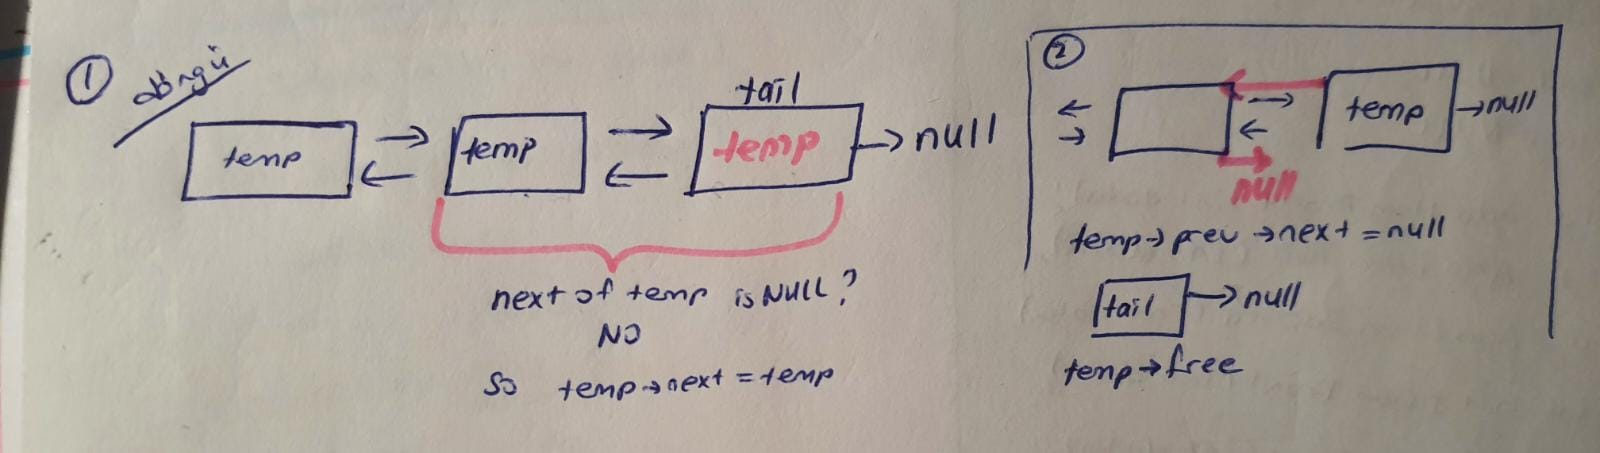 ① döngü
tail
temp → temp → temp → null
← ←
next of temp is NULL?
NO
So temp→next = temp
②
← → temp → null
→ ←
null
temp→prev→next = null
tail → null
temp→free